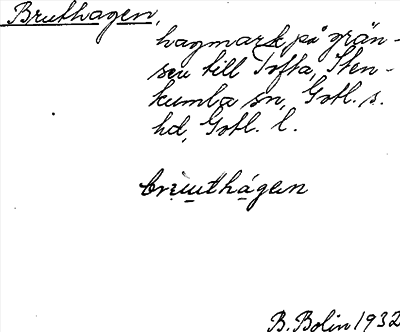 Bruthagen,
hagmark på grän-
sen till Tofta, Sten-
kumla sn, Gotl. s.
hd, Gotl. l.
bruuthágen
B. Bolin 1932